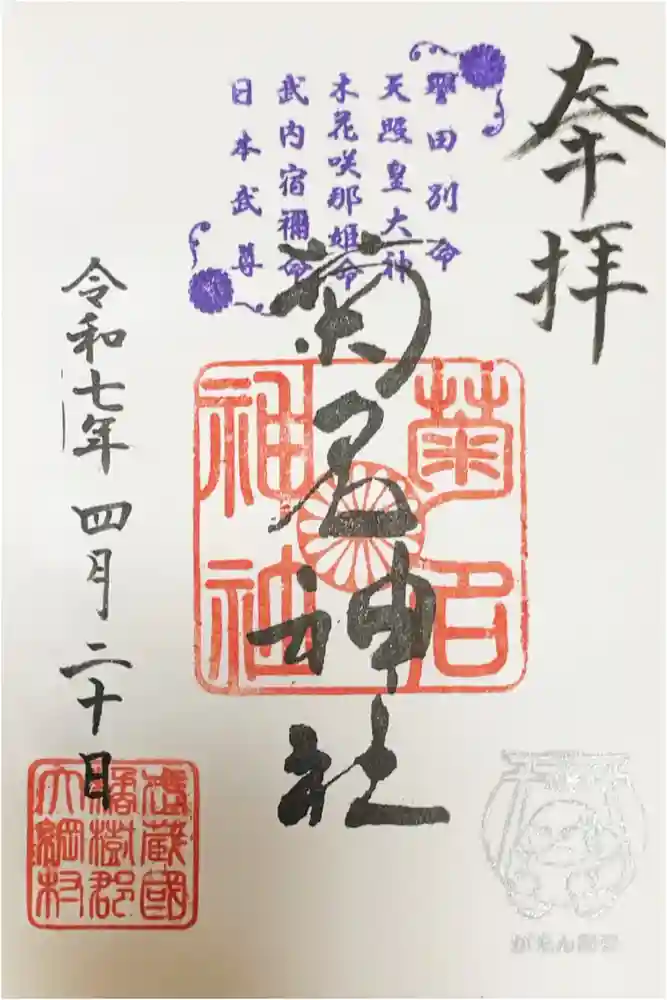 奉拝
譽田別命
天照皇大神
木花咲耶姫命
武内宿禰命
日本武尊
菊名神社
菊名
神社
令和七年 四月二十日
武蔵國
橘樹郡
大綱村
がまん様